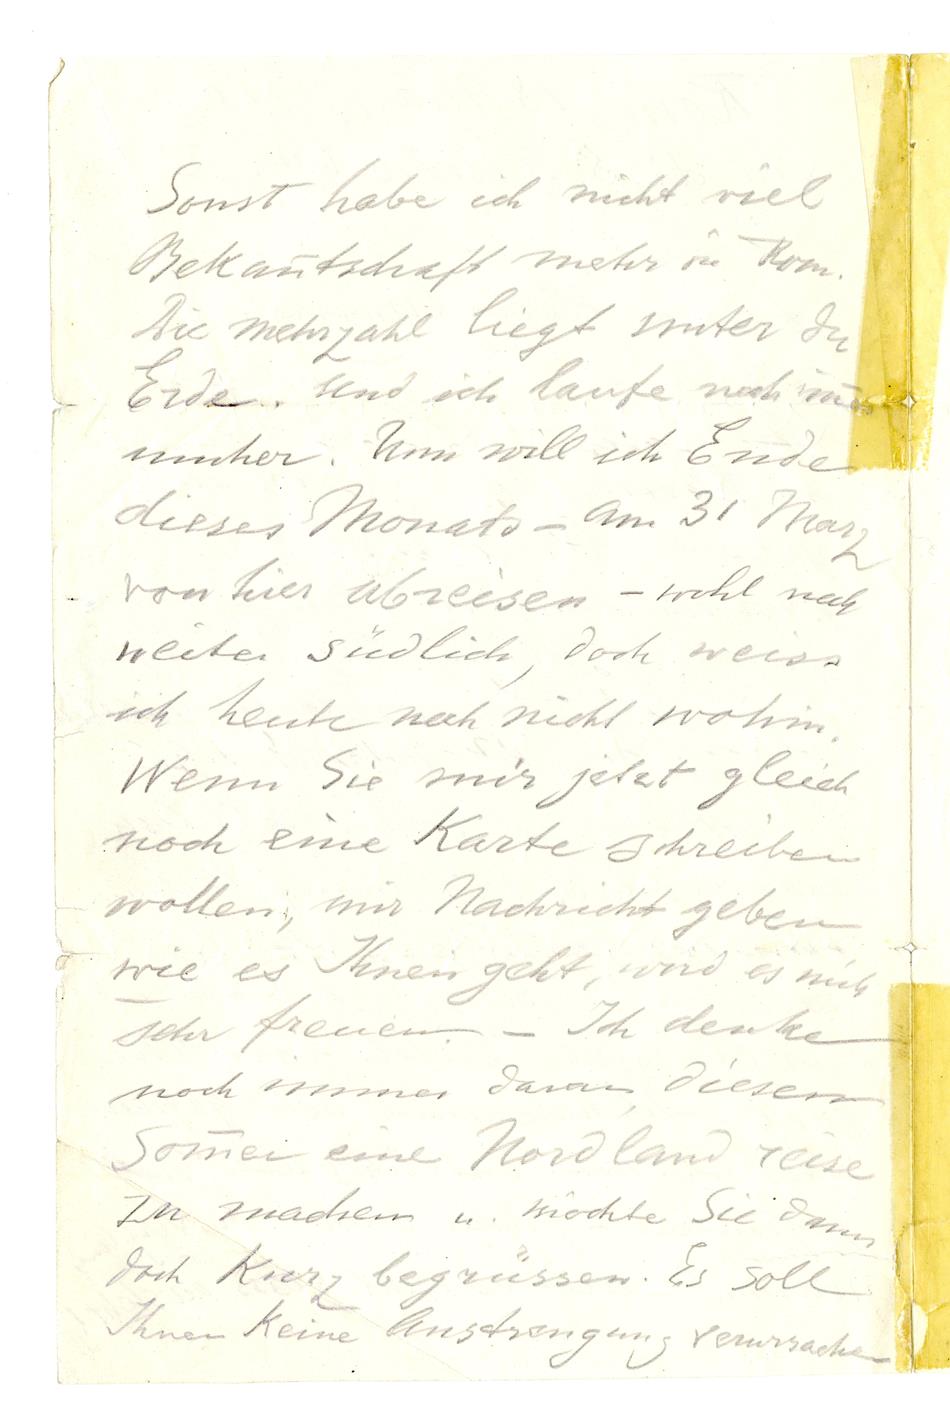 Sonst habe ich nicht viel
Bekañtschaft mehr in Rom.
Die Mehrzahl liegt unter der
Erde. Und ich laufe noch im̃er
umher. Nun will ich Ende
dieses Monats – am 31 März
von hier abreisen – wohl noch
weiter südlich, doch weiss
ich heute noch nicht wohin.
Wenn Sie mir jetzt gleich
noch eine Karte schreiben
wollen, mir Nachricht geben
wie es Ihnen geht, wird es mich
sehr freuen. – Ich denke
noch immer daran, diesen
Som̃er eine Nordland reise
zu machen u. möchte Sie dann
doch Kurz begrüssen. Es soll
Ihnen Keine Anstrengung verursachen